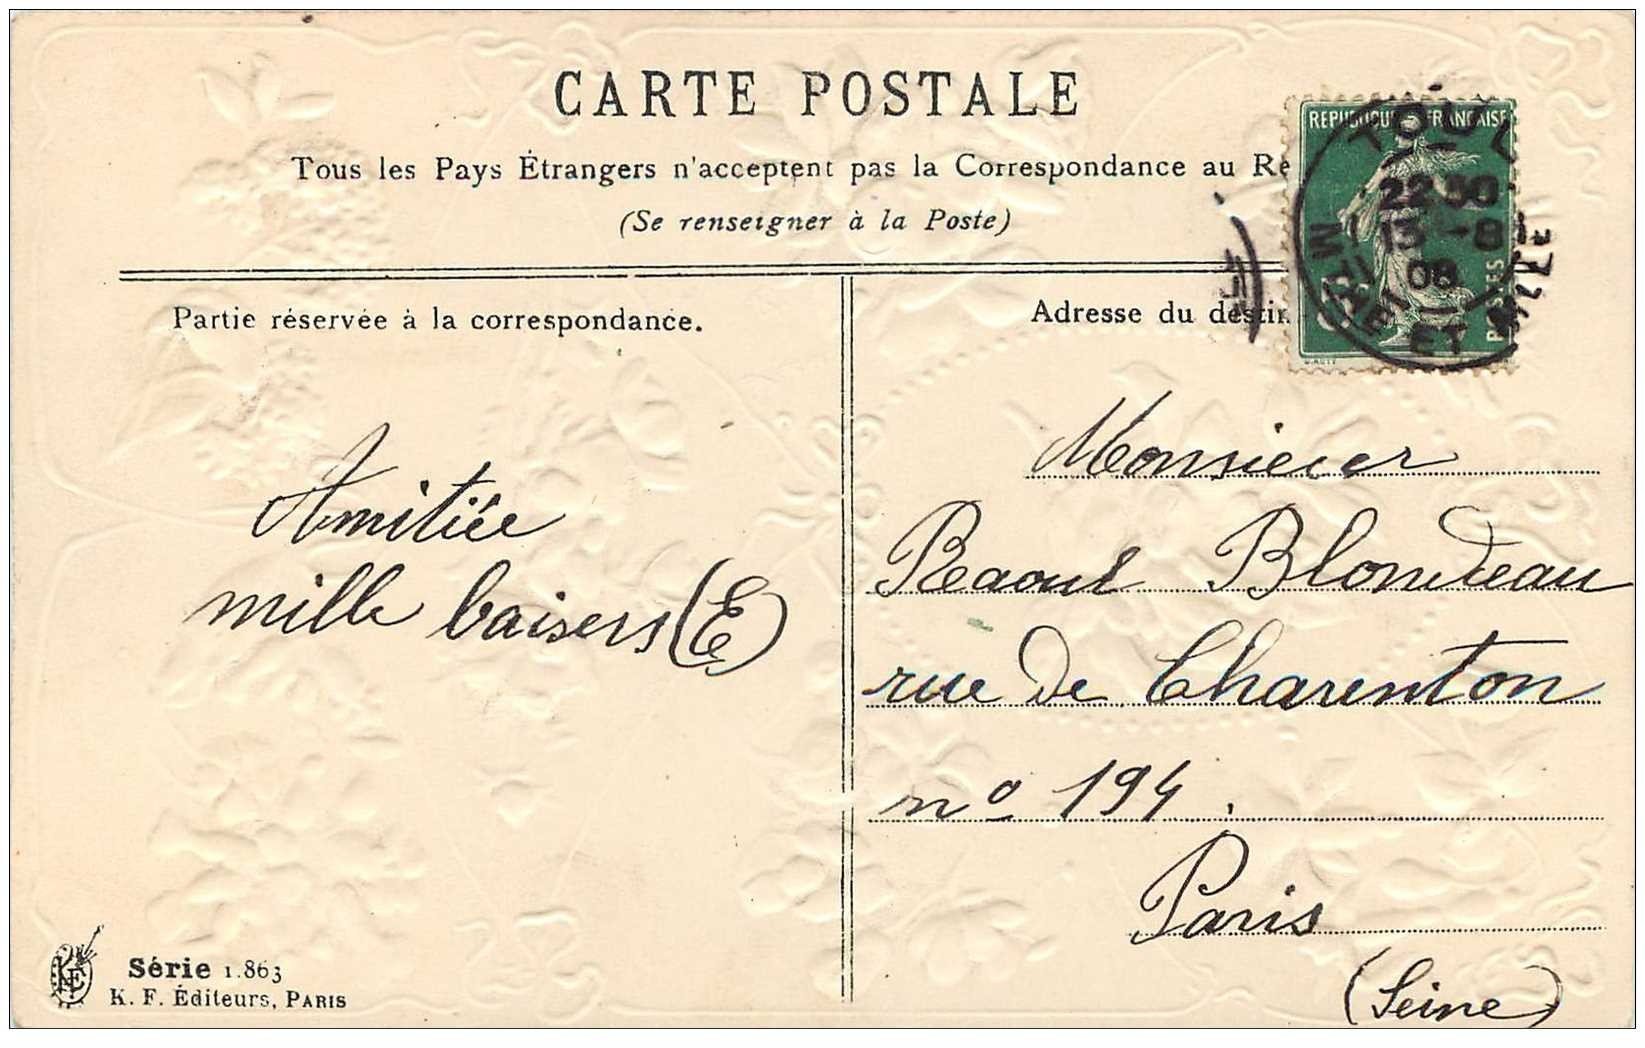 CARTE POSTALE
Tous les Pays Étrangers n'acceptent pas la Correspondance au Re
(Se renseigner à la Poste)
REPUBLIQUE FRANÇAISE
POSTES
TOUL
22 30
13 -8
08
MEURTHE ET MLLE
Partie réservée à la correspondance.
Adresse du destin
Amitiée
mille baisers (E)
Monsieur
Raoul Blondeau
rue de Charenton
n° 194.
Paris
(Seine)
KF
Série 1.863
K. F. Éditeurs, PARIS